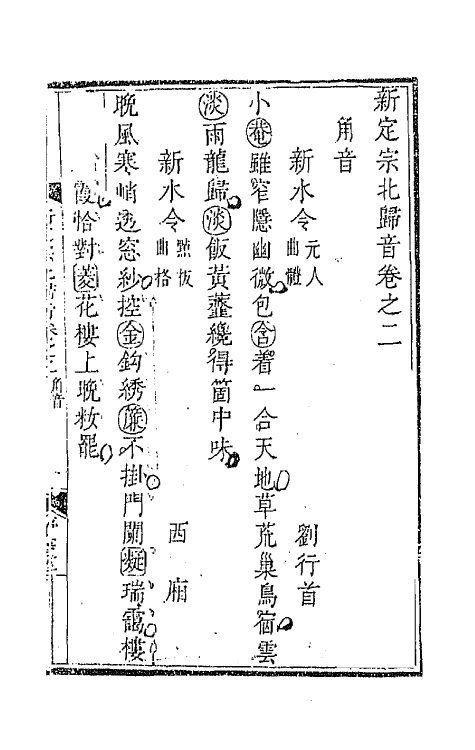 新定宗北歸音卷之二
角音
新水令 元人曲體 劉行首
小菴雖窄隱幽微包含着一合天地草荒巢鳥宿雲
淡雨龍歸淡飯黃虀纔得箇中味
新水令 點板曲格 西廂
晚風寒峭透窓紗控金鈎綉簾不掛門闌凝瑞靄樓
霞恰對菱花樓上晚粧罷
角音